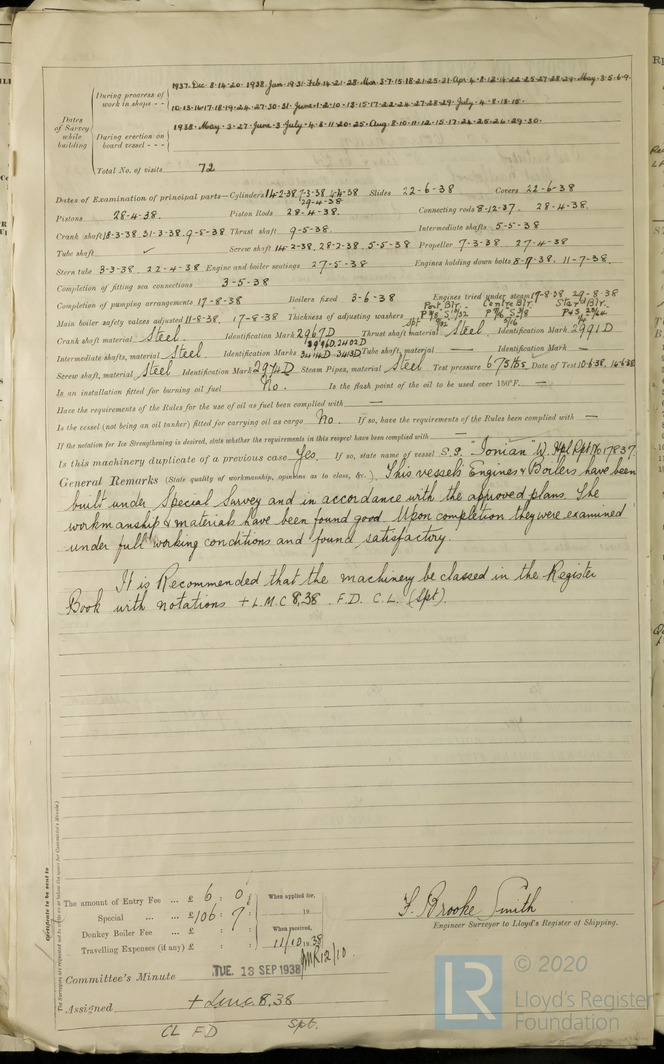 1937. Dec. 8.14.20. 1938 Jan. 19.31. Feb. 14.21.28. Mar. 3.7.15.18.21.25.31. Apr. 4.8.12.14.22.25.27.28.29. May. 3.5.6.9.
During progress of work in shops - -
10.13.16.17.18.19.24.27.30.31. June.1.2.10.13.15.17.22.24.27.28.29. July.4.8.13.15.
Dates of Survey while building
1938. May. 3.27. June. 3. July. 4.8.11.20.25. Aug. 8.10.11.12.15.17.24.25.26.29.30.
During erection on board vessel - - -
Total No. of visits 72
Dates of Examination of principal parts—Cylinders 14-2-38. 7-3-38. 4-4-38 29-4-38 Slides 22-6-38 Covers 22-6-38
Pistons 28-4-38. Piston Rods 28-4-38. Connecting rods 8-12-37. 28-4-38.
Crank shaft 18-3-38. 31-3-38. 9-5-38 Thrust shaft 9-5-38. Intermediate shafts 5-5-38
Tube shaft ✓ Screw shaft 14-2-38, 28-2-38, 5-5-38 Propeller 7-3-38 27-4-38
Stern tube 3-3-38. 22-4-38 Engine and boiler seatings 27-5-38 Engines holding down bolts 8-7-38. 11-7-38.
Completion of fitting sea connections 3-5-38
Completion of pumping arrangements 17-8-38 Boilers fixed 3-6-38 Engines tried under steam 17-8-38 29-8-38
Main boiler safety valves adjusted 11-8-38. 17-8-38 Thickness of adjusting washers Port Blr. Centre Blr. Starbd Blr.
Crank shaft material Steel Identification Mark 2967D Thrust shaft material Steel Identification Mark 2991D
Intermediate shafts, material Steel Identification Marks 3414D-3413D Tube shaft, material — Identification Mark —
Screw shaft, material Steel Identification Mark 2974D Steam Pipes, material Steel Test pressure 675 lbs Date of Test 10-6-38. 14-6-38
Is an installation fitted for burning oil fuel No. Is the flash point of the oil to be used over 150°F. —
Have the requirements of the Rules for the use of oil as fuel been complied with —
Is the vessel (not being an oil tanker) fitted for carrying oil as cargo No. If so, have the requirements of the Rules been complied with —
If the notation for Ice Strengthening is desired, state whether the requirements in this respect have been complied with —
Is this machinery duplicate of a previous case Yes. If so, state name of vessel S.S. "Ionian" W. Hpl Rpt No 17837.
General Remarks (State quality of workmanship, opinions as to class, &c.). This vessels Engines & Boilers have been
built under Special Survey and in accordance with the approved plans. The
workmanship & materials have been found good. Upon completion they were examined
under full working conditions and found satisfactory.
It is Recommended that the machinery be classed in the Register
Book with notations + L.M.C 8,38 . F.D. C.L. (Spt).
Certificate to be sent to
The amount of Entry Fee ... £ 6 : 0 : When applied for,
Special ... ... £ 106 : 7 : 19
Donkey Boiler Fee ... £ : : When received,
Travelling Expenses (if any) £ : : 11/10 1938
F. Brooke Smith
Engineer Surveyor to Lloyd's Register of Shipping.
Committee's Minute TUE. 13 SEP 1938
Assigned + Lmc 8.38
CL FD Spt.
LR © 2020
Lloyd's Register
Foundation